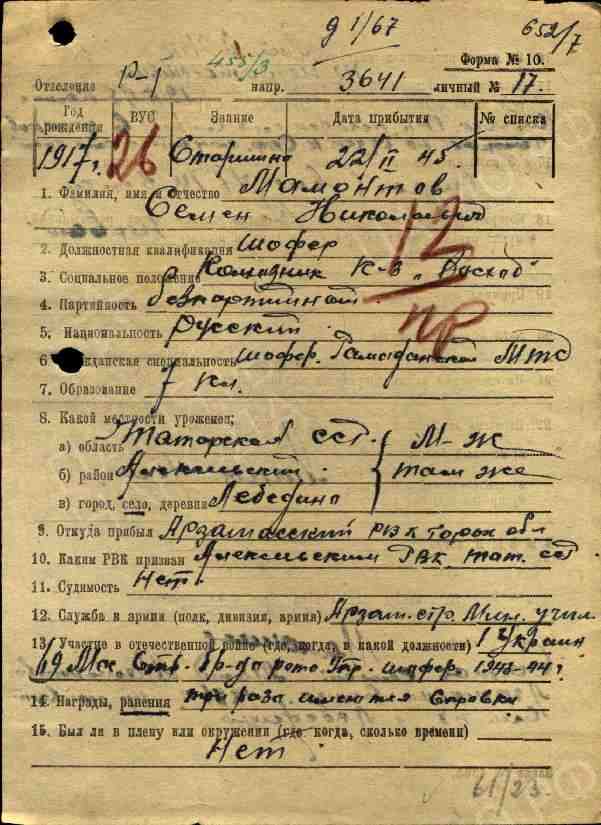 д 1/67
652/7
455/3
Форма № 10.
Отделение Р-1 напр. 3641 личный № 17.
Год рождения ВУС Звание Дата прибытия № списка
1917г. 26 Старшина 22/II 45.
1. Фамилия, имя и отчество Мамонтов
Семен Николаевич
12
2. Должностная квалификация шофер
3. Социальное положение Колхозник К-з „Восход"
4. Партийность беспартийный
пр
5. Национальность русский
6. Гражданская специальность шофер. МТС
7. Образование 7 кл.
8. Какой местности уроженец:
а) область Татарской ССР. М-ж
б) район Алексеевский там же
в) город, село, деревня Лебедино
9. Откуда прибыл Арзамасский РВК Горьк обл
10. Каким РВК призван Алексеевским РВК тат. сср
11. Судимость Нет
12. Служба в армии (полк, дивизия, армия) Арзам. стр. Мин. учил.
13. Участие в отечественной войне (где, когда, в какой должности) 1 Украин
69 Мех. бр-да рота шофер 1943-44г
14. Награды, ранения три раза имеются справки
15. Был ли в плену или окружении (где когда, сколько времени)
Нет
61/23.